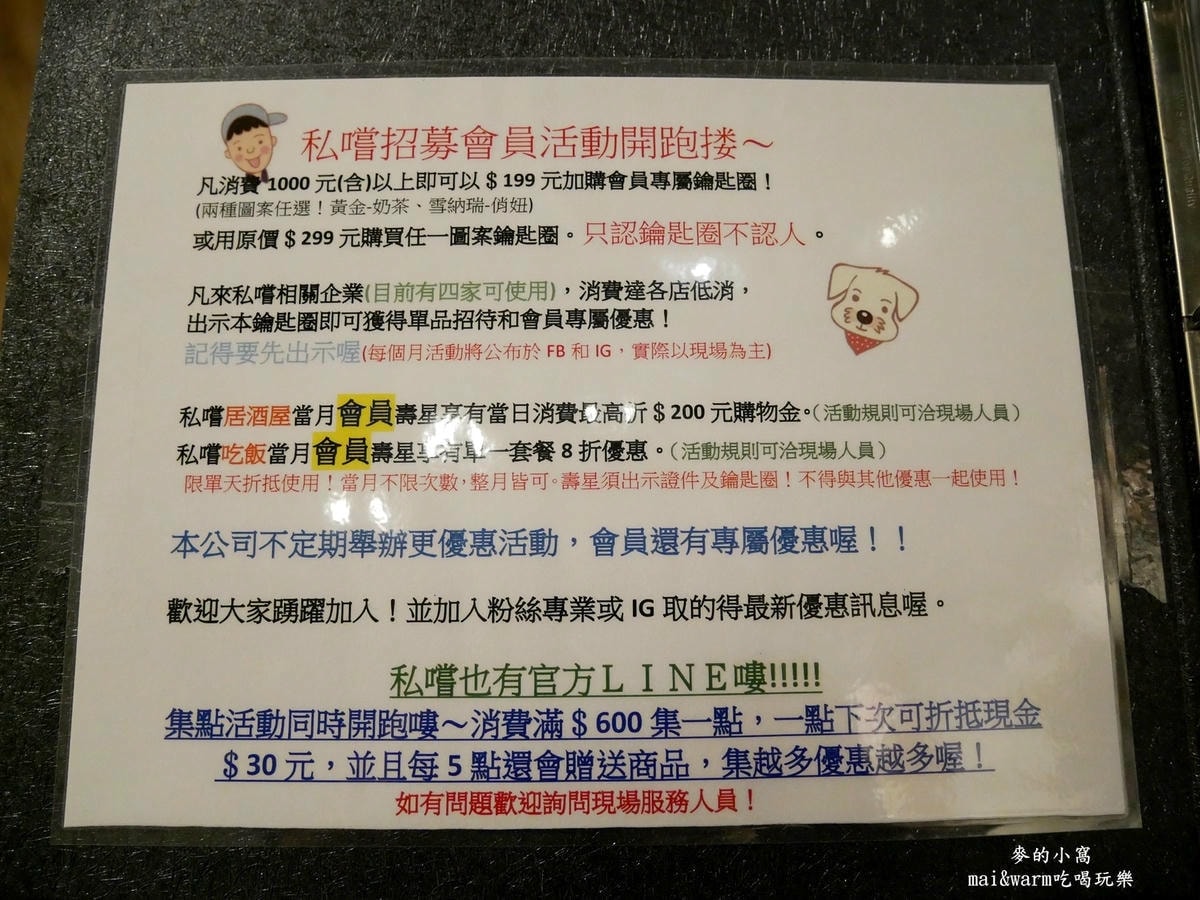 私嚐招募會員活動開跑摟～
凡消費 1000 元(含)以上即可以＄199 元加購會員專屬鑰匙圈！
(兩種圖案任選！黃金-奶茶、雪納瑞-俏妞)
或用原價＄299 元購買任一圖案鑰匙圈。只認鑰匙圈不認人。
凡來私嚐相關企業(目前有四家可使用)，消費達各店低消，
出示本鑰匙圈即可獲得單品招待和會員專屬優惠！
記得要先出示喔(每個月活動將公布於 FB 和 IG，實際以現場為主)
私嚐居酒屋當月會員壽星享有當日消費最高折＄200 元購物金。（活動規則可洽現場人員）
私嚐吃飯當月會員壽星享有單一套餐 8 折優惠。（活動規則可洽現場人員）
限單天折抵使用！當月不限次數，整月皆可。壽星須出示證件及鑰匙圈！不得與其他優惠一起使用！
本公司不定期舉辦更優惠活動，會員還有專屬優惠喔！！
歡迎大家踴躍加入！並加入粉絲專業或 IG 取的得最新優惠訊息喔。
私嚐也有官方ＬＩＮＥ嘍!!!!!
集點活動同時開跑嘍～消費滿＄600 集一點，一點下次可折抵現金
＄30 元，並且每 5 點還會贈送商品，集越多優惠越多喔！
如有問題歡迎詢問現場服務人員！
麥的小窩
mai&warm吃喝玩樂